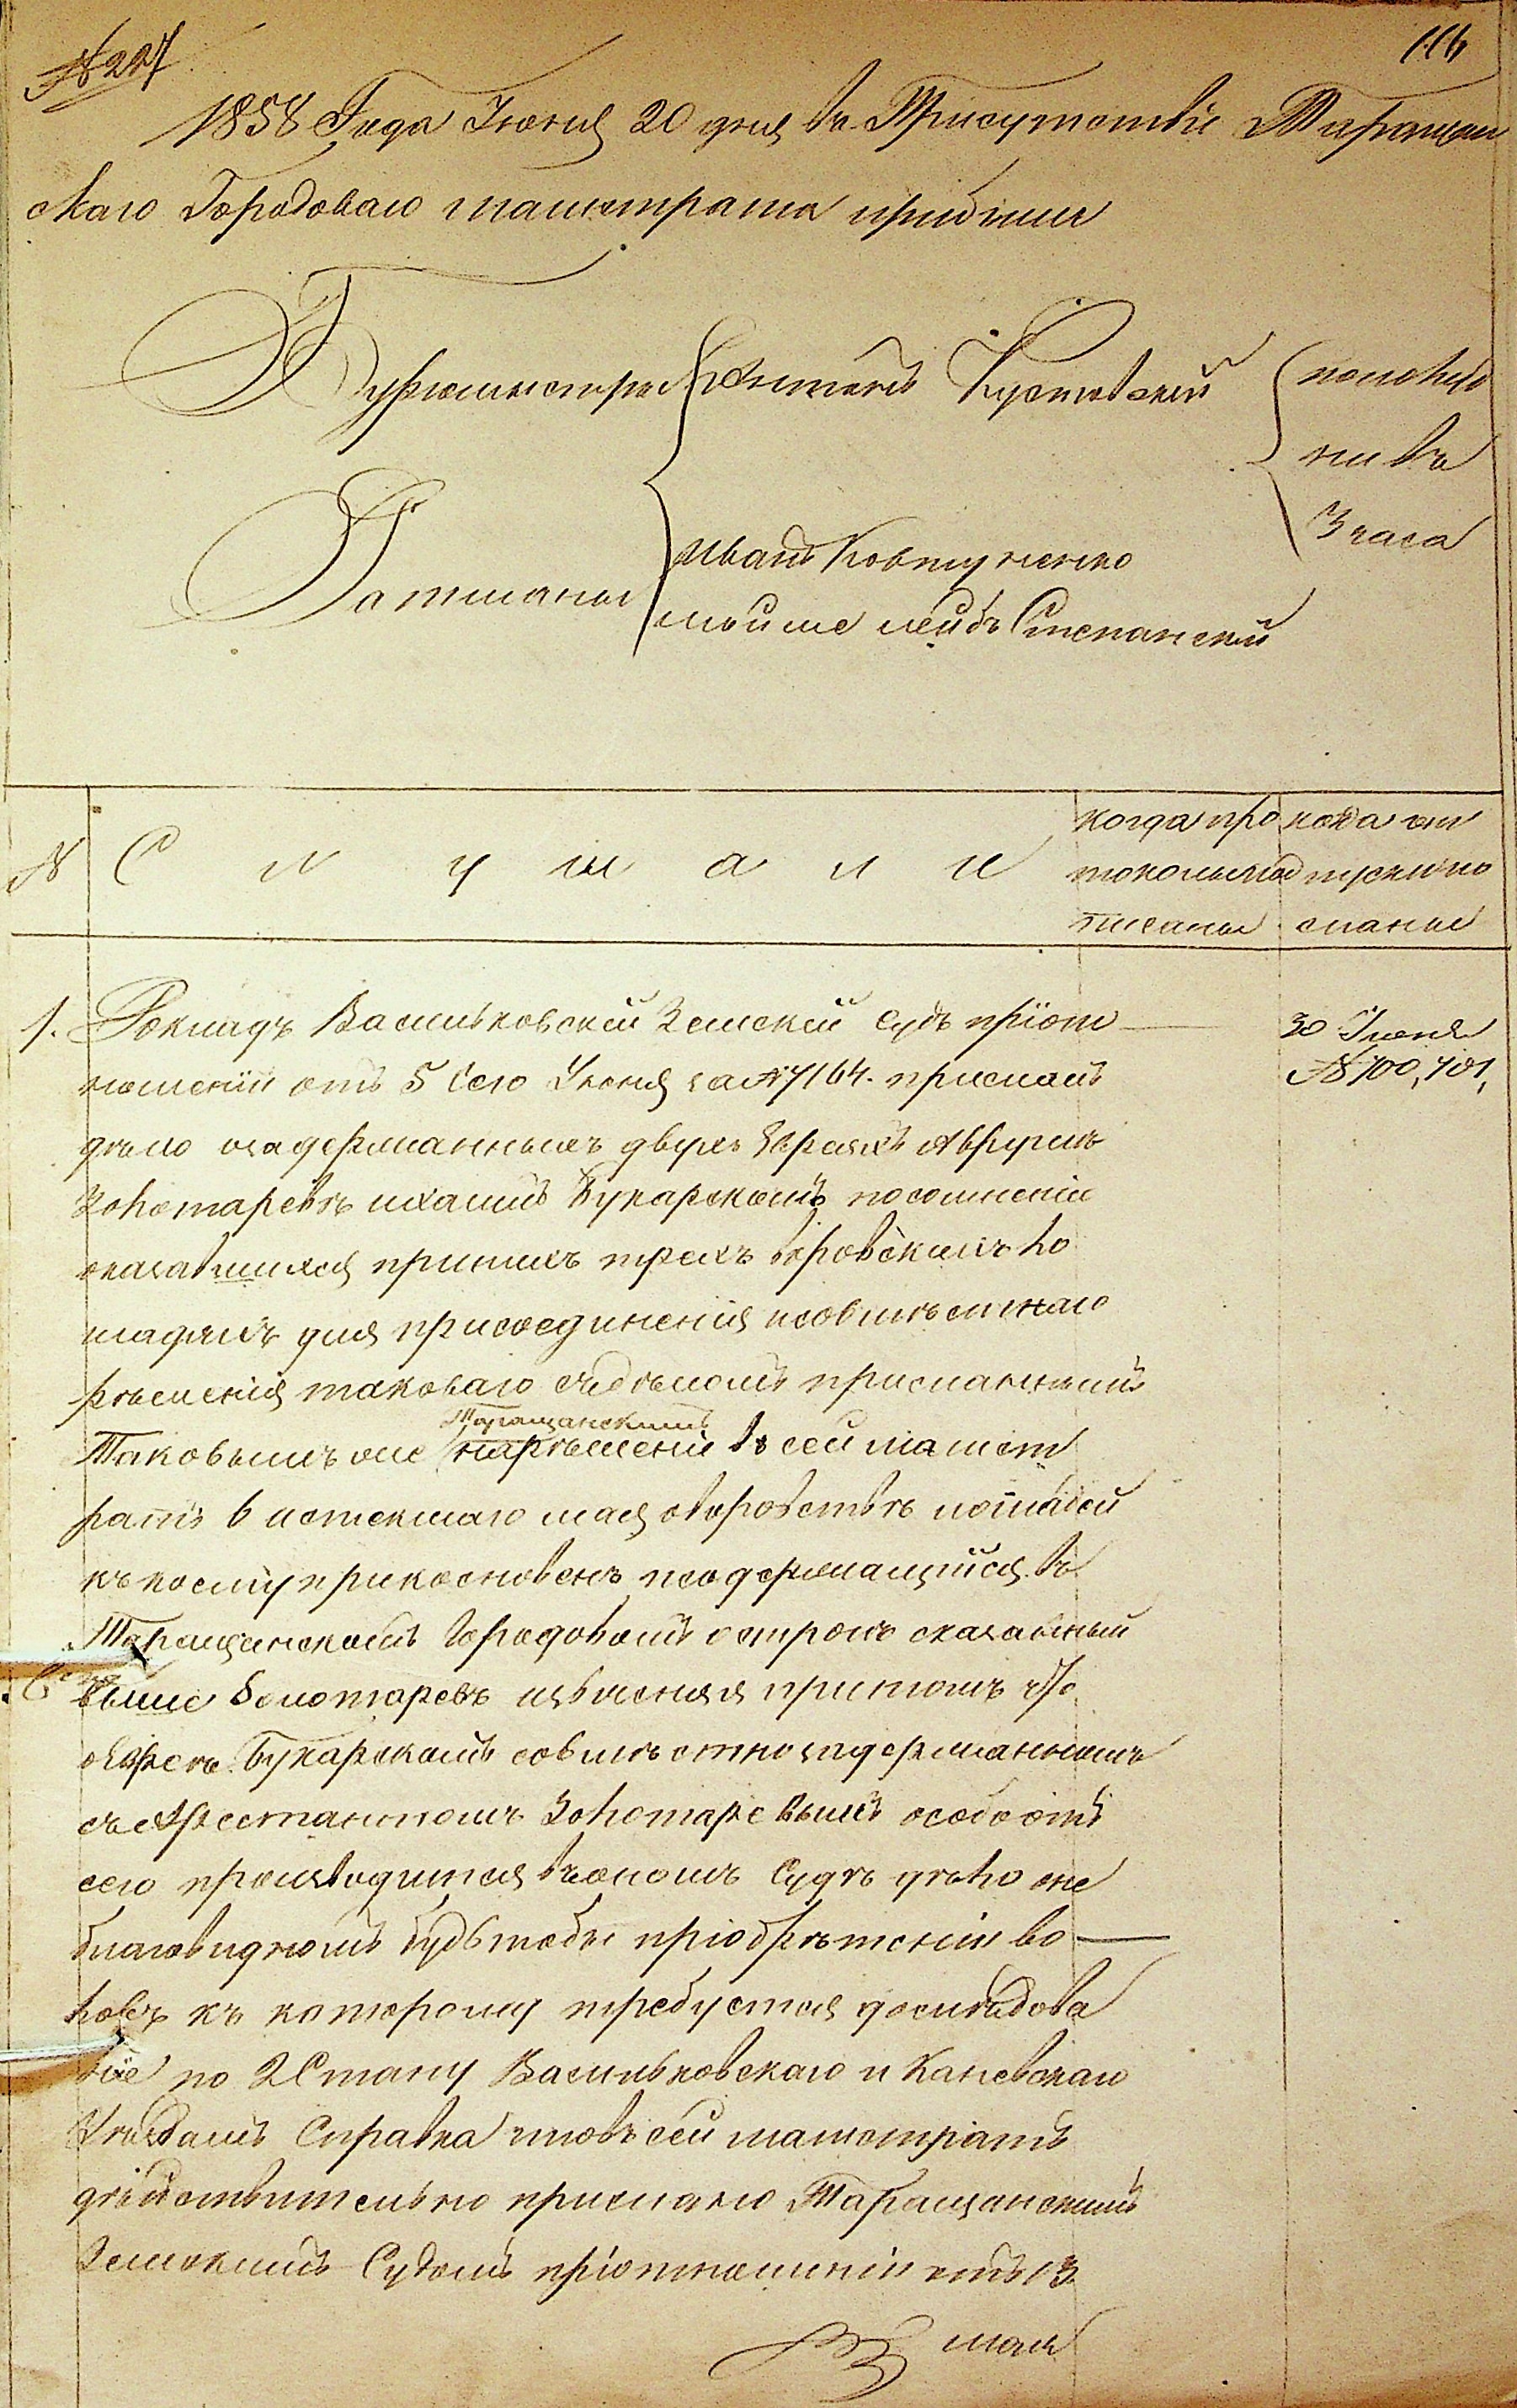 № 227
116
1858 Года Июня 20 дня въ Присутствіе Таращан
скаго Городоваго магистрата прибыли
Бургомистры Антонъ Кустовскій
пополуд
ни въ
3 часа
Ратманы
Иванъ Ковтуненко
мойше лейбъ Степанскій
№ Слушали
когда про
токолы под
писаны
когда от
пуски по
сланы
1. Докладъ Васильковскій Земскій Судъ при от
ношеніи отъ 5 сего Июня за № 7164. прислалъ
дело о задержанныхъ двухъ Евреяхъ Аврумъ
Золотаревъ и хаимъ Букарскомъ по сомненію
оказавшихся при нихъ трехъ воровскихъ ло
шадяхъ для присоединенія и совместнаго
решенія таковаго съ деломъ присланнымъ
Таковымъ же Таращанскимъ на решеніе въ сей магист
ратъ 6 истекшаго мая о воровстве лошадей
къ коему прикосновенъ и содержащійся въ
Таращанскомъ Городовомъ остроге сказанный
выше Золотаревъ изъясняя при томъ что
о Евреѣ Букарскомъ совместно задержанномъ
съ Арестантомъ Золотаревымъ особо отъ
сего производится въ ономъ Суде дело о не
благовидномъ будьтобы пріобретеніи во
ловъ къ которому требуется доследова
ніе по 2 Стану Васильковскаго и Каневскаго
Уездамъ Справка что въ сей магистратъ
действительно прислано Таращанскимъ
Земскимъ Судомъ при отношеніи отъ 13
мая
30 Июня
№ 700, 701,